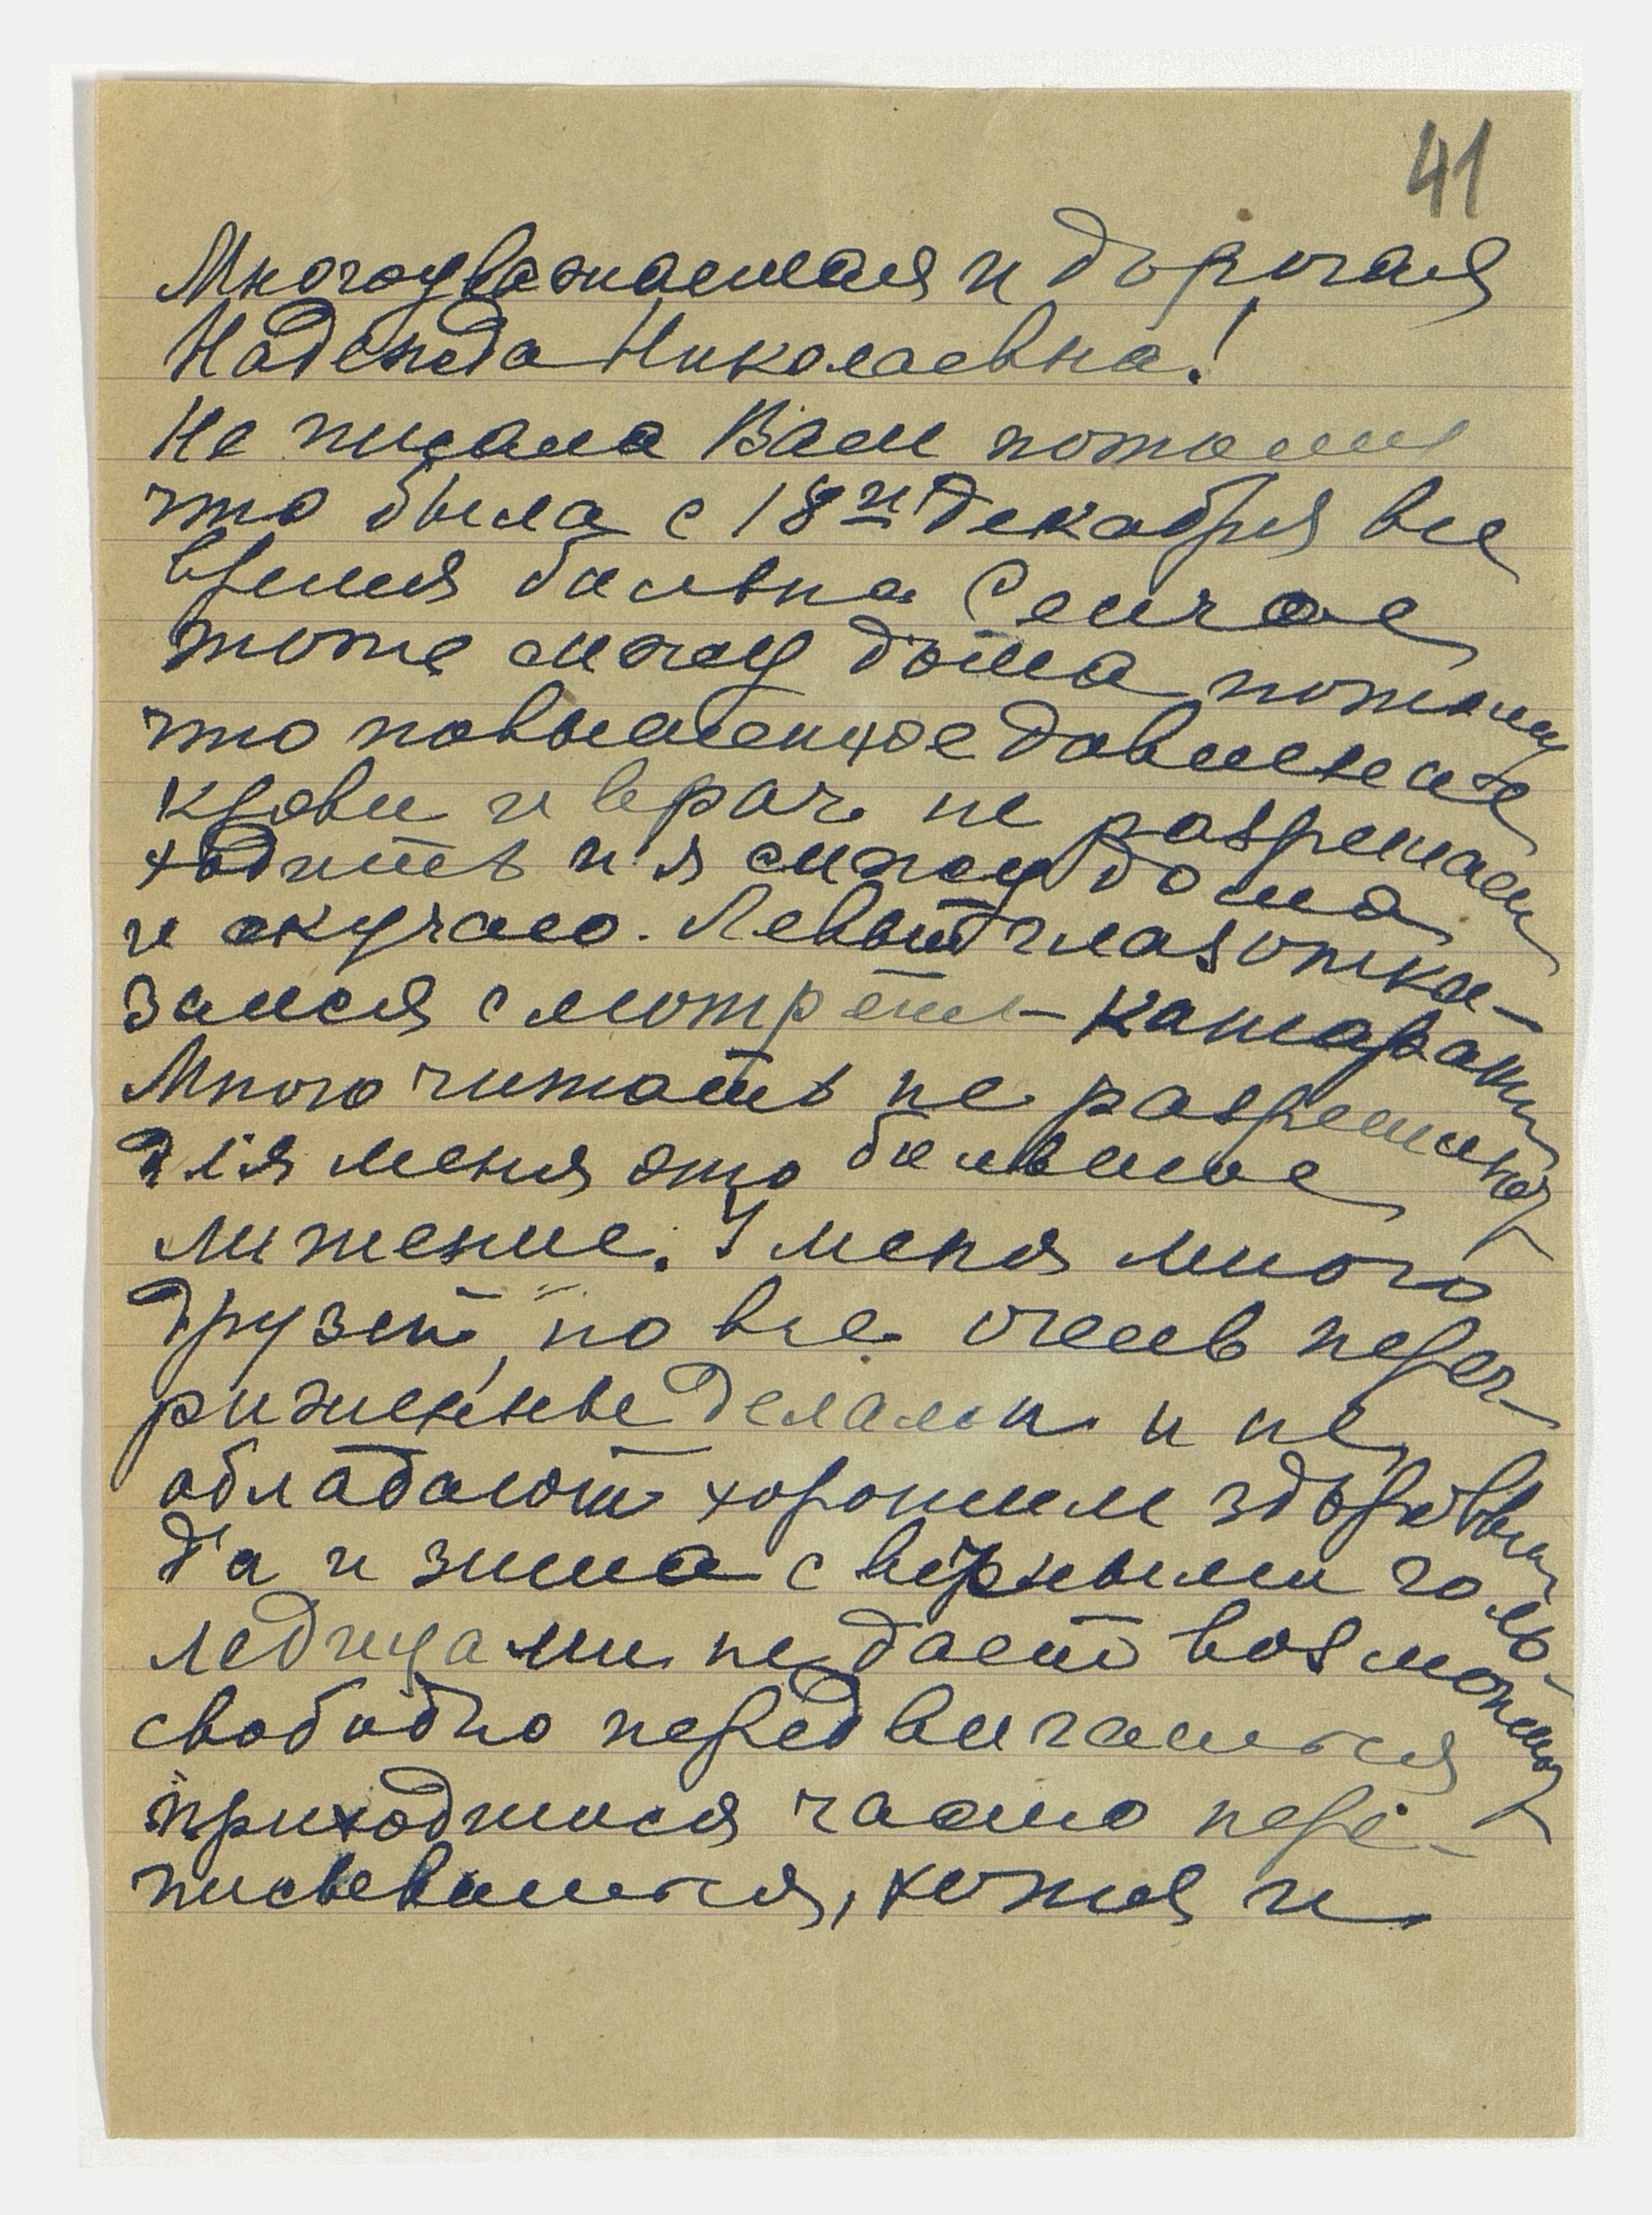 41
Многоуважаемая и дорогая
Надежда Николаевна!
Не писала Вам потому
что была с 18го декабря все
время больна Сейчас
тоже сижу дома, потому
что повышенное давление
крови и врач не разрешает
ходить и я сижу дома
и скучаю. Левый глаз отка-
зался смотреть – катаракта
Много читать не разрешено
для меня это большое
лишение. У меня много
друзей, но все очень перег-
руженные делами и не
обладают хорошим здоровьем
Да и зима с вечными голо-
ледицами не дает возможность
свободно передвигаться
приходится часто пере-
писываться, хотя и